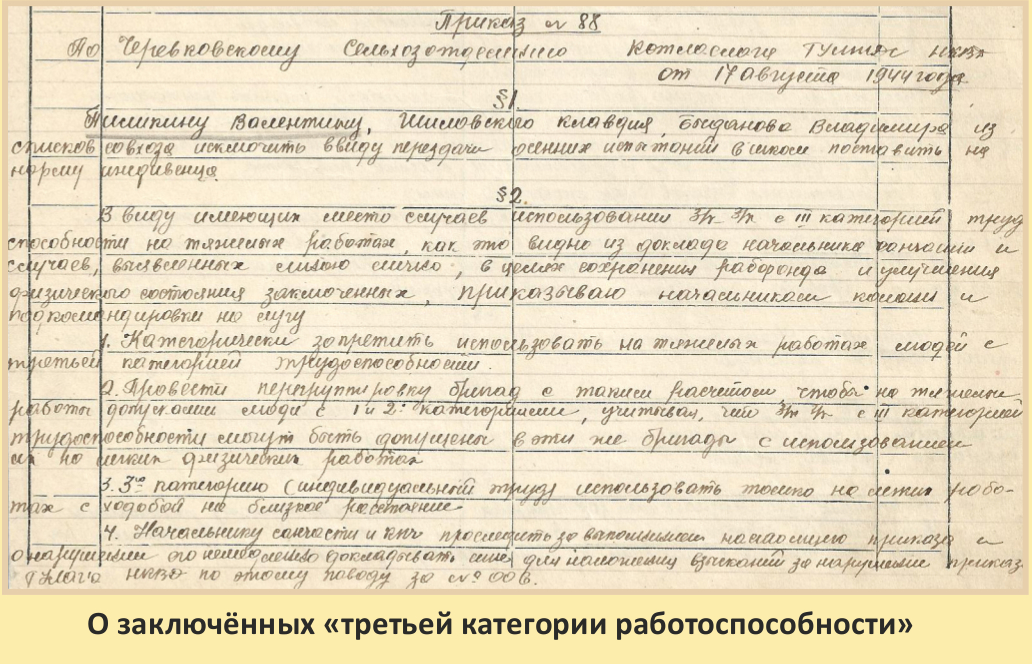 Приказ № 88
По Черевковскому Сельхозотделению Котласлага ГУЛЖДС НКВД
от 17 августа 1944 года.
§ 1.
Пилипкину Валентину, Шиловского клавдия, Богданова Владимира из
списков совхоза исключить ввиду передачи поставить на
норму иждивенца.
§ 2.
В виду имеющих место случаев использования з/к з/к с III категорией труд
способности на тяжелых работах, как это видно из доклада начальника санчасти и
случаев, выявленных мною лично, в целях сохранения рабфонда и улучшения
физического состояния заключенных, приказываю начальникам колонн и
подкомандировки на лугу
1. Категорически запретить использовать на тяжелых работах людей с
третьей категорией трудоспособности.
2. Провести перегруппировку бригад с таким расчетом, чтобы на тяжелые
работы допускали люди с 1 и 2й категориями, учитывая, что з/к з/к с III категорией
трудоспособности могут быть допущены в эти же бригады с использованием
их на легких физических работах
3. 3ю категорию (индивидуальный труд) использовать только на легких рабо-
тах с ходьбой на близкое расстояние
4. Начальнику санчасти и проследить за выполнением настоящего приказа и
о нарушении его немедленно докладывать мне для наложения взысканий за нарушение приказ
НКВД по этому поводу за №
О заключённых «третьей категории работоспособности»